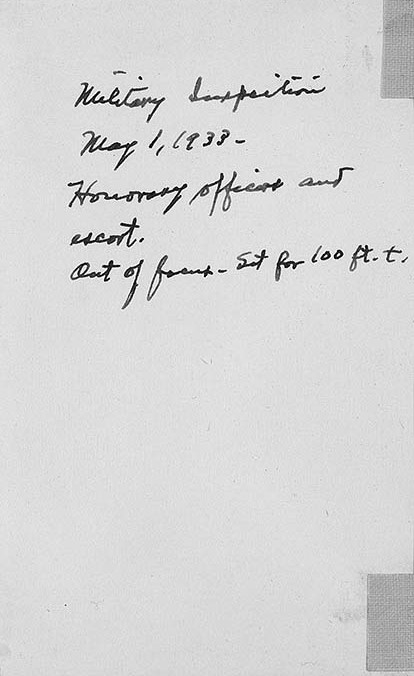 Military Inspection
May 1, 1933-
Honorary officers and
escort.
Out of focus - Set for 100 ft. t.